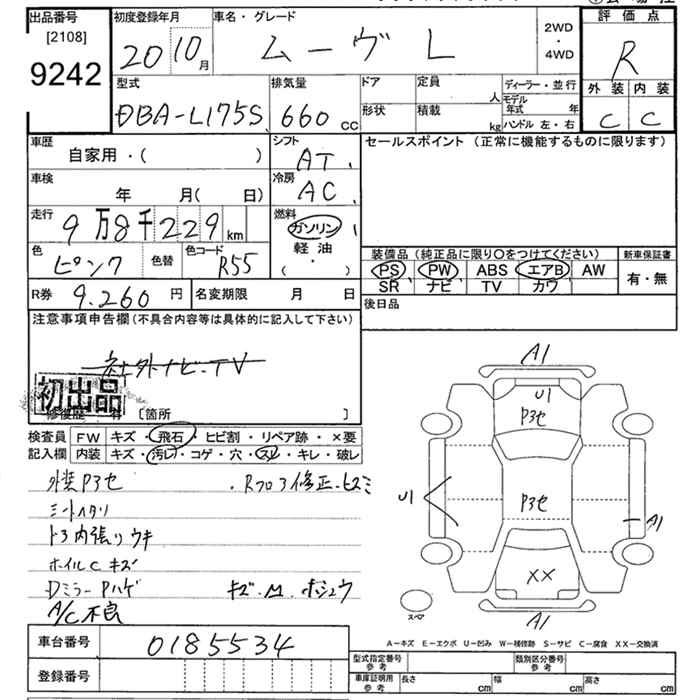 出品番号 初度登録年月 車名・グレード 2WD・4WD 評価点
[2108]
9242 20 10月 ムーヴ L R
型式 排気量 ドア 定員 人 ディーラー・並行 外装 内装
DBA-L175S 660cc 形状 積載 kg モデル年式 年 ハンドル 左・右 C C
車歴 シフト セールスポイント (正常に機能するものに限ります)
自家用・( ) AT
車検 冷房
年 月( 日) AC
走行 燃料
9万8千229km ガソリン
色 色替 色コード 軽油
ピンク R55 ( ・ )
装備品 (純正品に限り○をつけてください) 新車保証書
PS PW ABS エアB AW 有・無
SR ナビ TV カワ
R券 9.260円 名変期限 月 日 後日品
注意事項申告欄(不具合内容等は具体的に記入して下さい)
社外ナビ・TV
初出品
修復歴 有 [箇所 ]
検査員 FW キズ・飛石・ヒビ割・リペア跡・×要
記入欄 内装 キズ・汚レ・コゲ・穴・スレ・キレ・破レ
外装P3セ ・Rフロア修正・ヒズミ
シートヘタリ
トラ内張りウキ
ホイルC キズ
Dミラー Pハゲ キズ・M・ホシュウ
A/C不良
A1
U1
P3セ
U1
P3セ
A1
XX
スペア
A1
A-キズ E-エクボ U-凹み W-補修跡 S-サビ C-腐食 XX-交換済
車台番号 0185534
登録番号
型式指定番号 参考 類別区分番号 参考
車庫証明用 参考 長さ cm 幅 cm 高さ cm